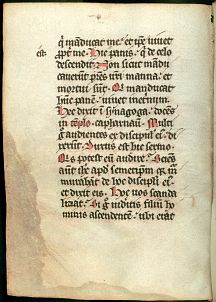 q̄ māducat me. et ip̄e uiuet
ꝓpt̄ me. Hic ē panis. q̄ de celo
descendit. Non sicut mādu
cauerūt pr̄es vr̄i manna. et
mortui sūt. Qi manducat
hūc panē. uiuet ineternum.
Hec dixit ī synagoga. docēs
in tēplo. capharnau. Multi
ḡ audientes ex discipul' ei'. di
xerūt. Durus est hic sermo.
Q's potest eū audire. Sciēs
aut̄ ih̄c apd̄ semetip̄m. qr̄ m̄
murabāt de h̄oc discipl'i ei'.
et dixit eis. Hoc uos scanda
lizat. Si ḡ uiditis filiū ho
minis ascendentē. ubi erat